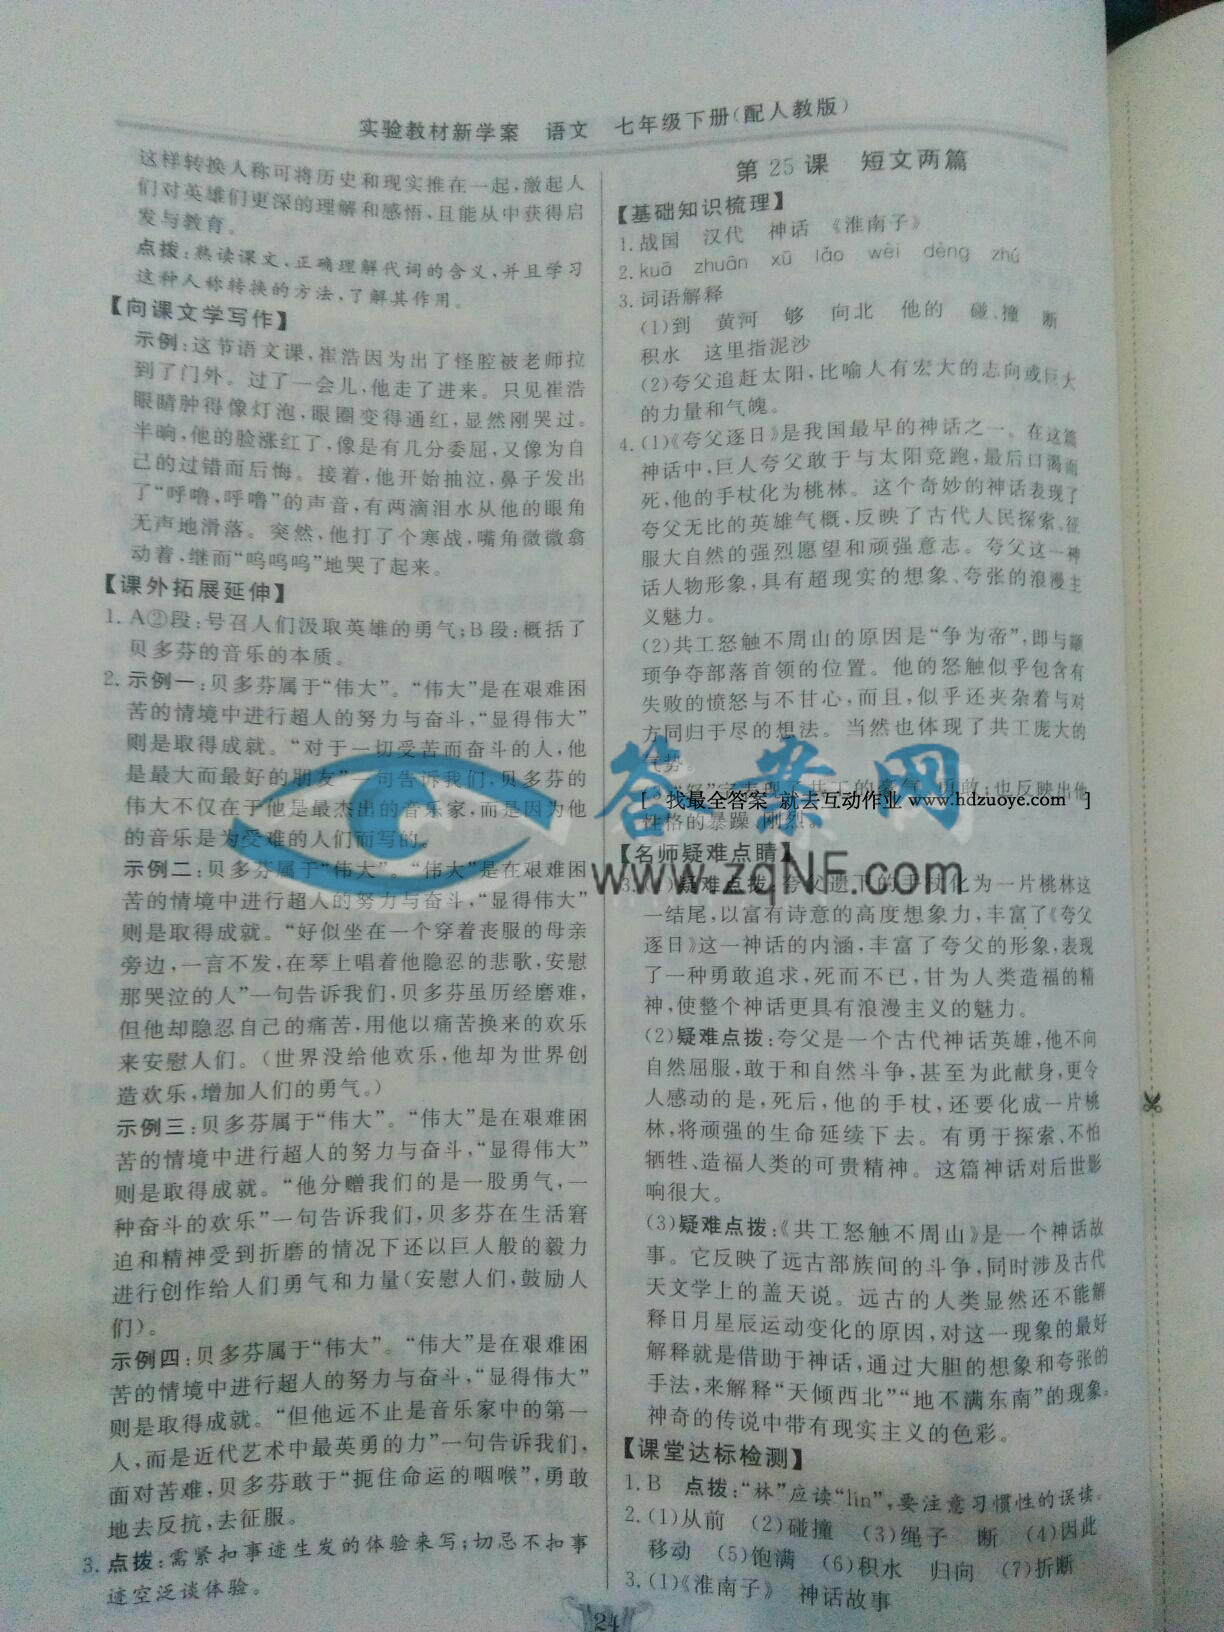 实验教材新学案 语文 七年级下册(配人教版)
这样转换人称可将历史和现实推在一起,激起人
们对英雄们更深的理解和感悟,且能从中获得启
发与教育。
点拨:熟读课文,正确理解代词的含义,并且学习
这种人称转换的方法,了解其作用。
【向课文学写作】
示例:这节语文课,崔浩因为出了怪腔被老师拉
到了门外。过了一会儿,他走了进来。只见崔浩
眼睛肿得像灯泡,眼圈变得通红,显然刚哭过。
半晌,他的脸涨红了,像是有几分委屈,又像为自
己的过错而后悔。接着,他开始抽泣,鼻子发出
了“呼噜,呼噜”的声音,有两滴泪水从他的眼角
无声地滑落。突然,他打了个寒战,嘴角微微翕
动着,继而“呜呜呜”地哭了起来。
【课外拓展延伸】
1. A②段:号召人们汲取英雄的勇气;B段:概括了
贝多芬的音乐的本质。
2. 示例一:贝多芬属于“伟大”。“伟大”是在艰难困
苦的情境中进行超人的努力与奋斗,“显得伟大”
则是取得成就。“对于一切受苦而奋斗的人,他
是最大而最好的朋友”一句告诉我们,贝多芬的
伟大不仅在于他是最杰出的音乐家,而是因为他
的音乐是为受难的人们而写的。
示例二:贝多芬属于“伟大”。“伟大”是在艰难困
苦的情境中进行超人的努力与奋斗,“显得伟大”
则是取得成就。“好似坐在一个穿着丧服的母亲
旁边,一言不发,在琴上唱着他隐忍的悲歌,安慰
那哭泣的人”一句告诉我们,贝多芬虽历经磨难,
但他却隐忍自己的痛苦,用他以痛苦换来的欢乐
来安慰人们。(世界没给他欢乐,他却为世界创
造欢乐,增加人们的勇气。)
示例三:贝多芬属于“伟大”。“伟大”是在艰难困
苦的情境中进行超人的努力与奋斗,“显得伟大”
则是取得成就。“他分赠我们的是一股勇气,一
种奋斗的欢乐”一句告诉我们,贝多芬在生活窘
迫和精神受到折磨的情况下还以巨人般的毅力
进行创作给人们勇气和力量(安慰人们,鼓励人
们)。
示例四:贝多芬属于“伟大”。“伟大”是在艰难困
苦的情境中进行超人的努力与奋斗,“显得伟大”
则是取得成就。“但他远不止是音乐家中的第一
人,而是近代艺术中最英勇的力”一句告诉我们,
面对苦难,贝多芬敢于“扼住命运的咽喉”,勇敢
地去反抗,去征服。
3. 点拨:需紧扣事迹生发的体验来写;切忌不扣事
迹空泛谈体验。
第25课 短文两篇
【基础知识梳理】
1. 战国 汉代 神话 《淮南子》
2. kuā zhuān xū lǎo wèi dèng zhú
3. 词语解释
(1)到 黄河 够 向北 他的 碰、撞 断
积水 这里指泥沙
(2)夸父追赶太阳,比喻人有宏大的志向或巨大
的力量和气魄。
4. (1)《夸父逐日》是我国最早的神话之一。在这篇
神话中,巨人夸父敢于与太阳竞跑,最后口渴而
死,他的手杖化为桃林。这个奇妙的神话表现了
夸父无比的英雄气概,反映了古代人民探索、征
服大自然的强烈愿望和顽强意志。夸父这一神
话人物形象,具有超现实的想象、夸张的浪漫主
义魅力。
(2)共工怒触不周山的原因是“争为帝”,即与颛
顼争夺部落首领的位置。他的怒触似乎包含有
失败的愤怒与不甘心,而且,似乎还夹杂着与对
方同归于尽的想法。当然也体现了共工庞大的
气势。
也反映出他
性格的暴躁 刚烈。
【名师疑难点睛】
(1)疑难点拨:夸父遗下的手杖化为一片桃林这
一结尾,以富有诗意的高度想象力,丰富了《夸父
逐日》这一神话的内涵,丰富了夸父的形象,表现
了一种勇敢追求,死而不已,甘为人类造福的精
神,使整个神话更具有浪漫主义的魅力。
(2)疑难点拨:夸父是一个古代神话英雄,他不向
自然屈服,敢于和自然斗争,甚至为此献身,更令
人感动的是,死后,他的手杖,还要化成一片桃
林,将顽强的生命延续下去。有勇于探索、不怕
牺牲、造福人类的可贵精神。这篇神话对后世影
响很大。
(3)疑难点拨:《共工怒触不周山》是一个神话故
事。它反映了远古部族间的斗争,同时涉及古代
天文学上的盖天说。远古的人类显然还不能解
释日月星辰运动变化的原因,对这一现象的最好
解释就是借助于神话,通过大胆的想象和夸张的
手法,来解释“天倾西北”“地不满东南”的现象。
神奇的传说中带有现实主义的色彩。
【课堂达标检测】
1. B 点拨:“林”应读“lín”,要注意习惯性的误读。
2. (1)从前 (2)碰撞 (3)绳子 断 (4)因此
移动 (5)饱满 (6)积水 归向 (7)折断
3. (1)《淮南子》 神话故事
24
答案网
www.zqNF.com
[ 找最全答案 就去互动作业 www.hdzuoye.com ]